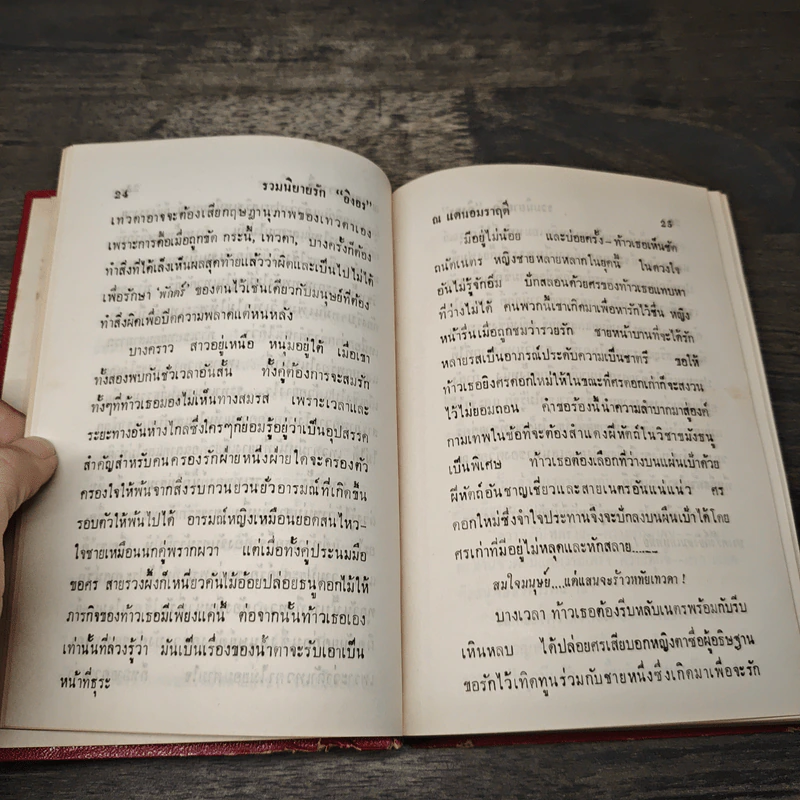 24
รวมนิยายรัก "อิงอร"
เทวดาอาจจะต้องเสียกฤษฎานุภาพของเทวดาเอง
เพราะการดื้อเมื่อถูกขัด กระนี้, เทวดา, บางครั้งก็ต้อง
ทำสิ่งที่ได้เล็งเห็นผลสุดท้ายแล้วว่าผิดและเป็นไปไม่ได้
เพื่อรักษา 'พักตร์' ของตนไว้เช่นเดียวกับมนุษย์ที่ต้อง
ทำสิ่งผิดเพื่อปิดความพลาดแต่หนหลัง
บางคราว สาวอยู่เหนือ หนุ่มอยู่ใต้ เมื่อเขา
ทั้งสองพบกันชั่วเวลาอันสั้น ทั้งคู่ต้องการจะสมรัก
ทั้งๆที่ท้าวเธอมองไม่เห็นทางสมรส เพราะเวลาและ
ระยะทางอันห่างไกลซึ่งใครๆก็ย่อมรู้อยู่ว่าเป็นอุปสรรค
สำคัญสำหรับคนครองรักฝ่ายหนึ่งฝ่ายใดจะครองตัว
ครองใจให้พ้นจากสิ่งรบกวนยวนยั่วอารมณ์ที่เกิดขึ้น
รอบตัวให้พ้นไปได้ อารมณ์หญิงเหมือนยอดสนไหว–
ใจชายเหมือนนกคู่พรากผวา แต่เมื่อทั้งคู่ประนมมือ
ขอศร สายรวงผึ้งก็เหนี่ยวคันไม้อ้อยปล่อยธนูดอกไม้ให้
ภารกิจของท้าวเธอมีเพียงแค่นี้ ต่อจากนั้นท้าวเธอเอง
เท่านั้นที่ล่วงรู้ว่า มันเป็นเรื่องของน้ำตาจะรับเอาเป็น
หน้าที่ธุระ
ณ แดนอมราฤดี
25
มีอยู่ไม่น้อย และบ่อยครั้ง–ท้าวเธอเห็นชัด
ถนัดเนตร หญิงชายหลายหลากในยุคนี้ ในดวงใจ
อันไม่รู้จักอิ่ม ปักสลอนด้วยศรของท้าวเธอแทบหา
ที่ว่างไม่ได้ คนพวกนี้เขาเกิดมาเพื่อหารักไว้ชื่น หญิง
หน้ารื่นเมื่อถูกชมว่ารวยรัก ชายหน้าบานที่จะได้รัก
หลายรสเป็นอาภรณ์ประดับความเป็นชาตรี ขอให้
ท้าวเธอยิงศรดอกใหม่ให้ในขณะที่ศรดอกเก่าก็จะสงวน
ไว้ไม่ยอมถอน คำขอร้องนี้นำความลำบากมาสู่องค์
กามเทพในข้อที่จะต้องสำแดงฝีหัตถ์ในวิชาขมังธนู
เป็นพิเศษ ท้าวเธอต้องเลือกที่ว่างบนแผ่นเป้าด้วย
ฝีหัตถ์อันชาญเชี่ยวและสายเนตรอันแน่แน่ว ศร
ดอกใหม่ซึ่งจำใจประทานจึงจะปักลงบนผืนเป้าได้โดย
ศรเก่าที่มีอยู่ไม่หลุดและหักสลาย......
สมใจมนุษย์....แต่แสนจะร้าวหทัยเทวดา!
บางเวลา ท้าวเธอต้องรีบหลับเนตรพร้อมกับรีบ
เหินหลบ ได้ปล่อยศรเสียบอกหญิงตาซื่อผู้อธิษฐาน
ขอรักไว้เทิดทูนร่วมกับชายหนึ่งซึ่งเกิดมาเพื่อจะรัก